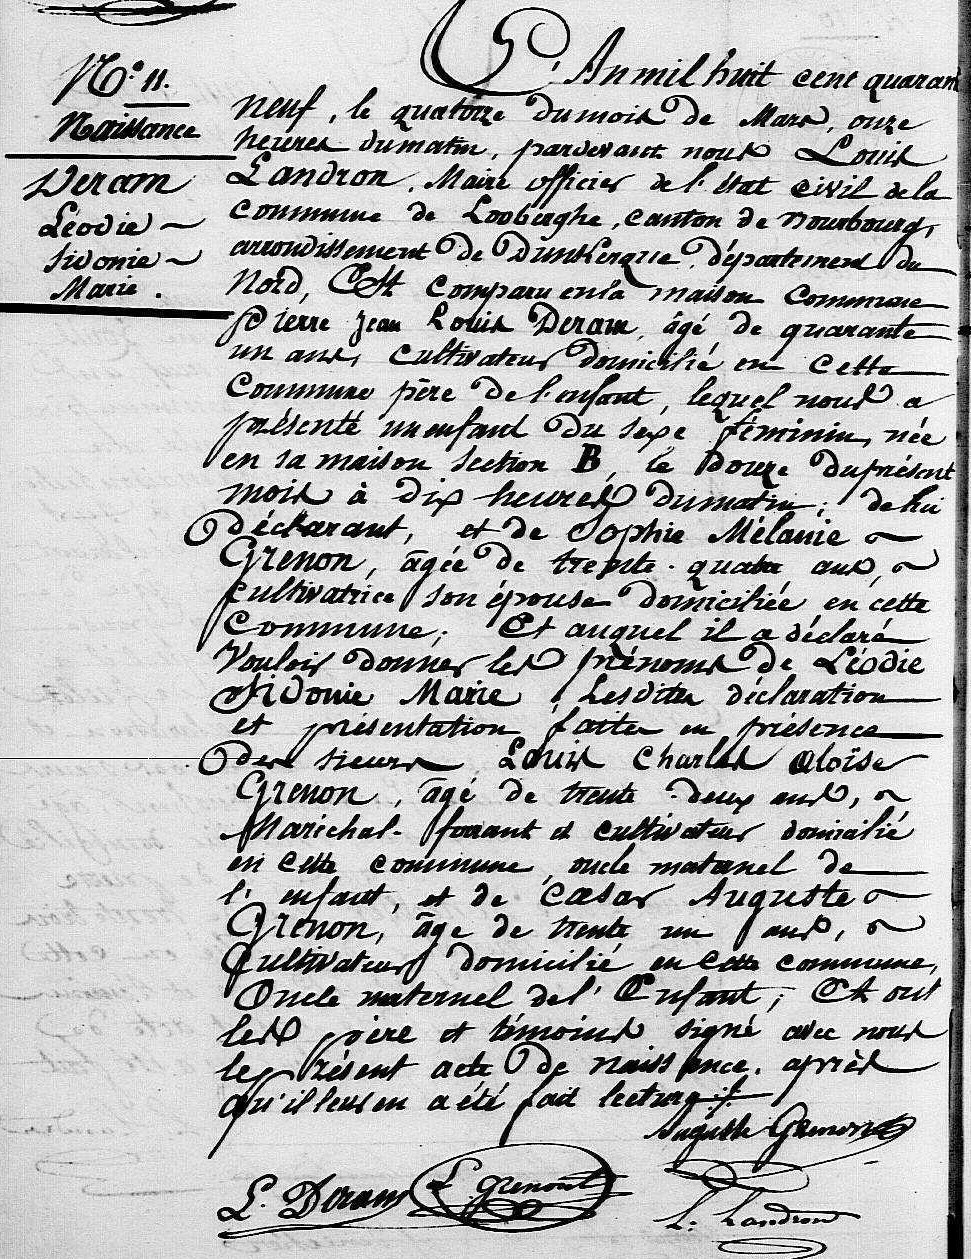 N.° 11.
Naissance
Deram
Léodie ~
Sidonie ~
Marie .
L'An mil huit cent quaran
neuf, le quatorze du mois de Mars, onze
heures du matin, pardevant nous Louis
Landron, Maire officier de l'état civil de la
commune de Looberghe, canton de Bourbourg,
arrondissement de Dunkerque, département du
Nord, Est comparu en la maison commune
Pierre Jean Louis Deram, âgé de quarante
un ans, cultivateur domicilié en cette
Commune père de l'enfant, lequel nous a
présenté un enfant du sexe féminin, née
en sa maison section B, le douze du présent
mois à dix heures du matin; de lui
déclarant, et de Sophie Mélanie ~
Grenon, âgée de trente-quatre ans, ~
cultivatrice son épouse domiciliée en cette
Commune; Et auquel il a déclaré
Vouloir donner les prénoms de Léodie
Sidonie Marie; Lesdites déclaration
et présentation faites en présence
des sieurs Louis Charles Aloïse
Grenon, âgé de trente-deux ans, ~
Maréchal-ferrant et cultivateur domicilié
en cette commune, oncle maternel de
l'enfant, et de Cæsar Auguste ~
Grenon, âge de trente un ans, ~
Cultivateur domicilié en cette commune,
Oncle maternel de l'Enfant; Et ont
les père et témoins signé avec nous
le présent acte de naissance, après
qu'il leur en a été fait lecture ./.
Auguste Grenon
L. Deram L. grenon
L. Landron